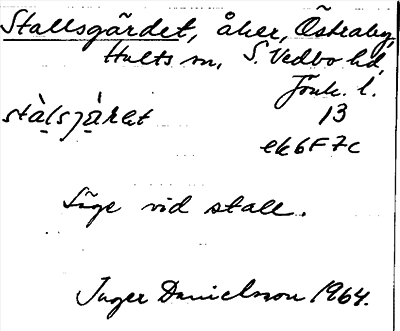 Stallsgärdet, åker, Östraby,
Hults sn, S. Vedbo hd,
Jönk. l.
stàlsjä̀ṛet 13
ek 6F7c
Läge vid stall.
Inger Danielsson 1964.